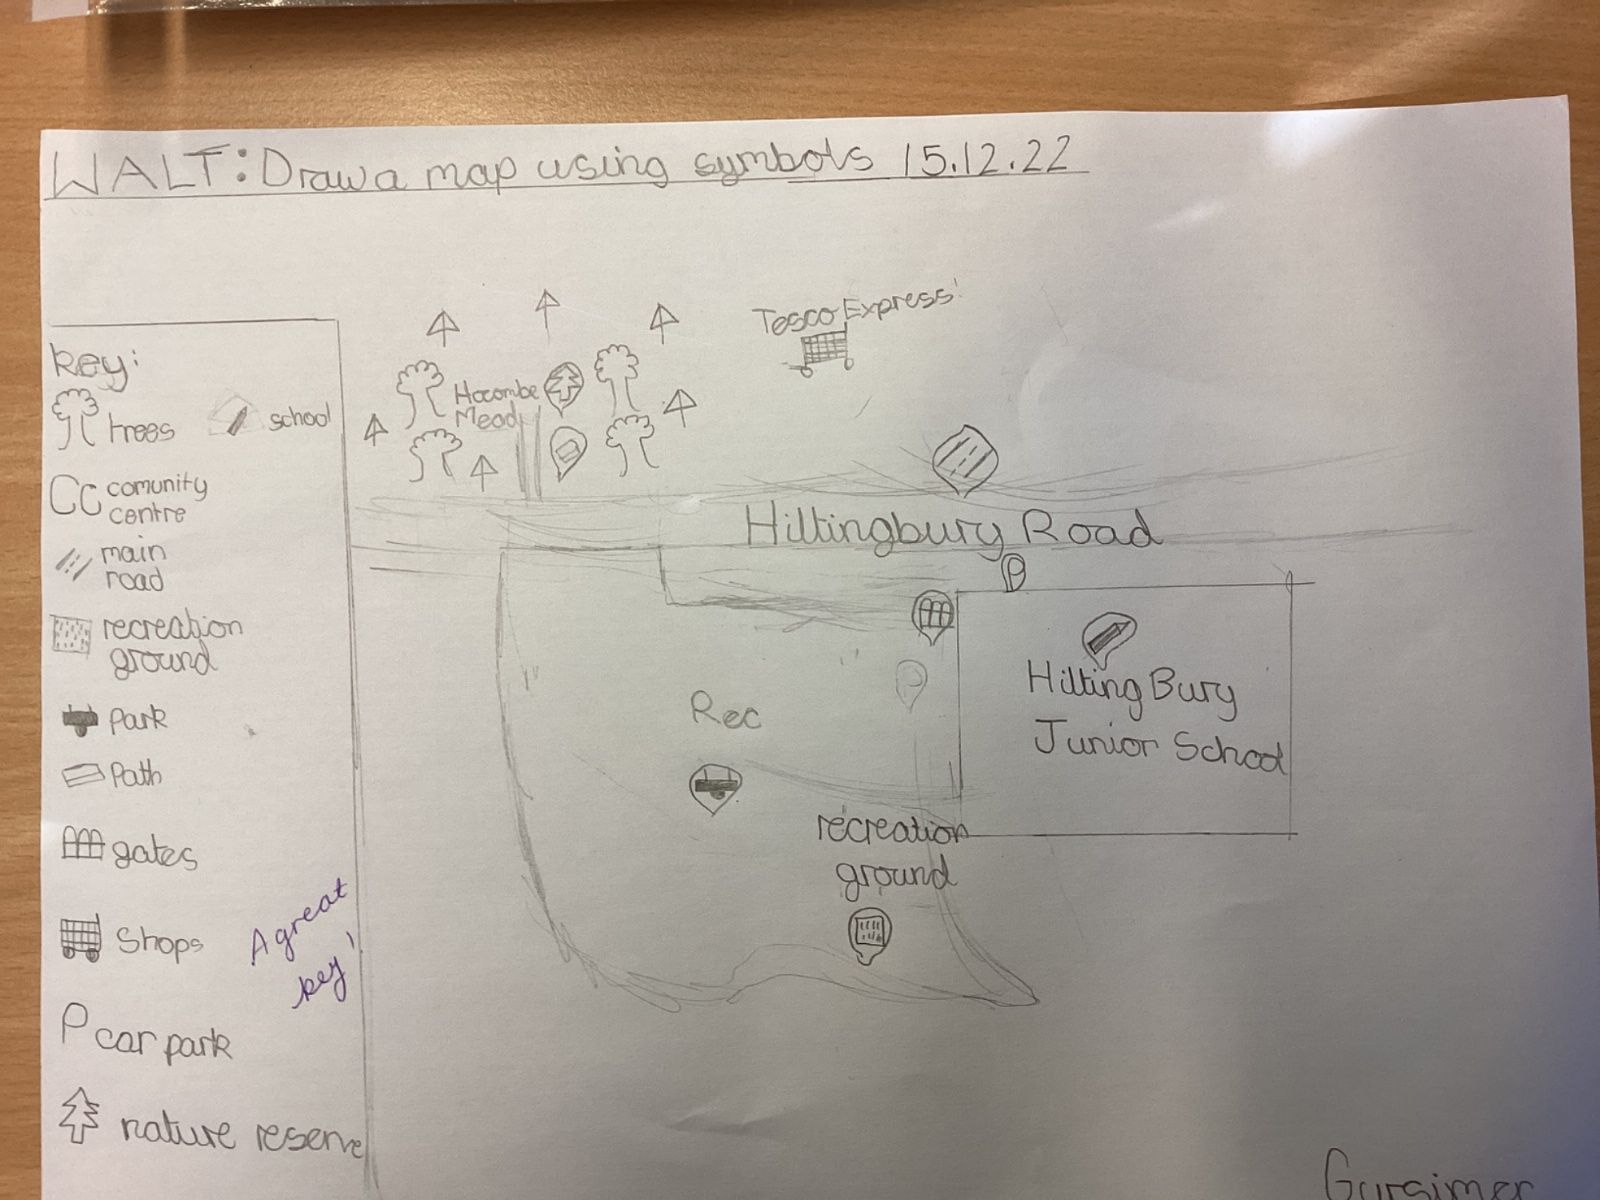 WALT: Draw a map using symbols 15.12.22
Key:
trees
school
CC comunity
centre
main
road
recreation
ground
park
Path
gates
Shops
P car park
nature reserve
A great
key!
Hocombe
Mead
Tesco Express
Hiltingbury Road
P
P
Hilting Bury
Junior School
Rec
recreation
ground
Gursimer